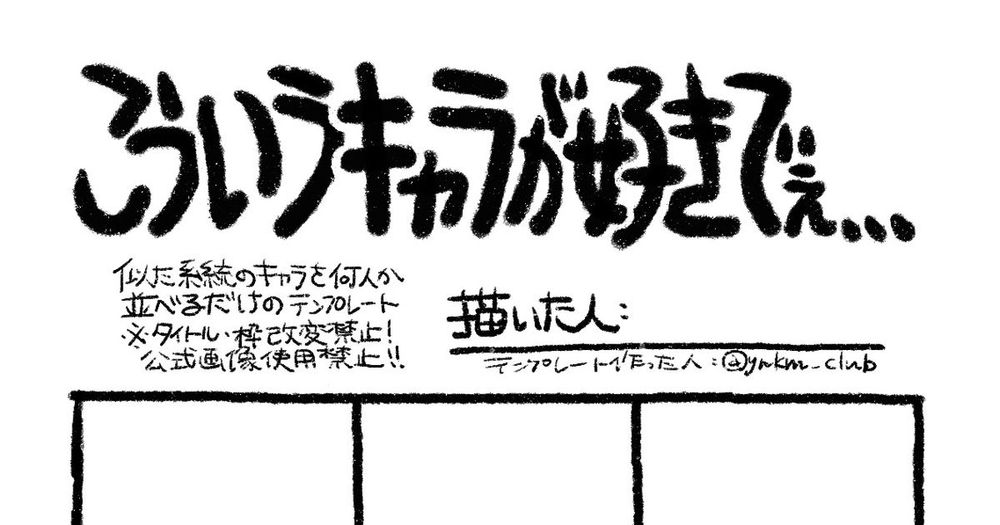 こういうキャラが好きでぇ...
似た系統のキャラを何人か
並べるだけのテンプレート
※タイトル・枠改変禁止!
公式画像使用禁止!!
描いた人:
テンプレート作った人:@ynkm_club